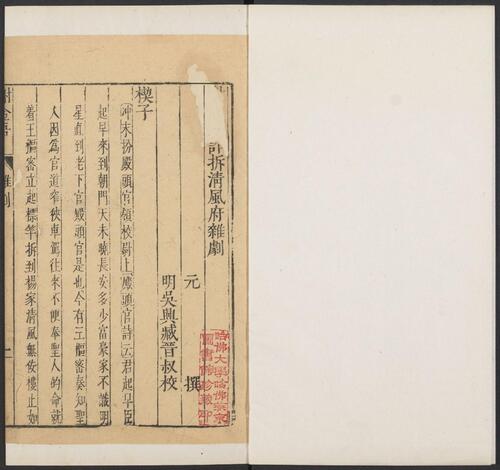 詐拆淸風府雜劇
元 撰
明吳興臧晉叔校
楔子
冲末扮殿頭官領校尉上殿頭官詩云君起早臣
起早來到朝門天未曉長安多少富豪家不識明
星直到老下官殿頭官是也今有王樞密奏知聖
人因爲官道窄狹車駕往來不便奉聖人的命就
着王樞密立起標竿拆到楊家淸風無佞樓止如
謝金吾 雜劇 一
哈佛大學哈佛燕京
圖書館珍藏印